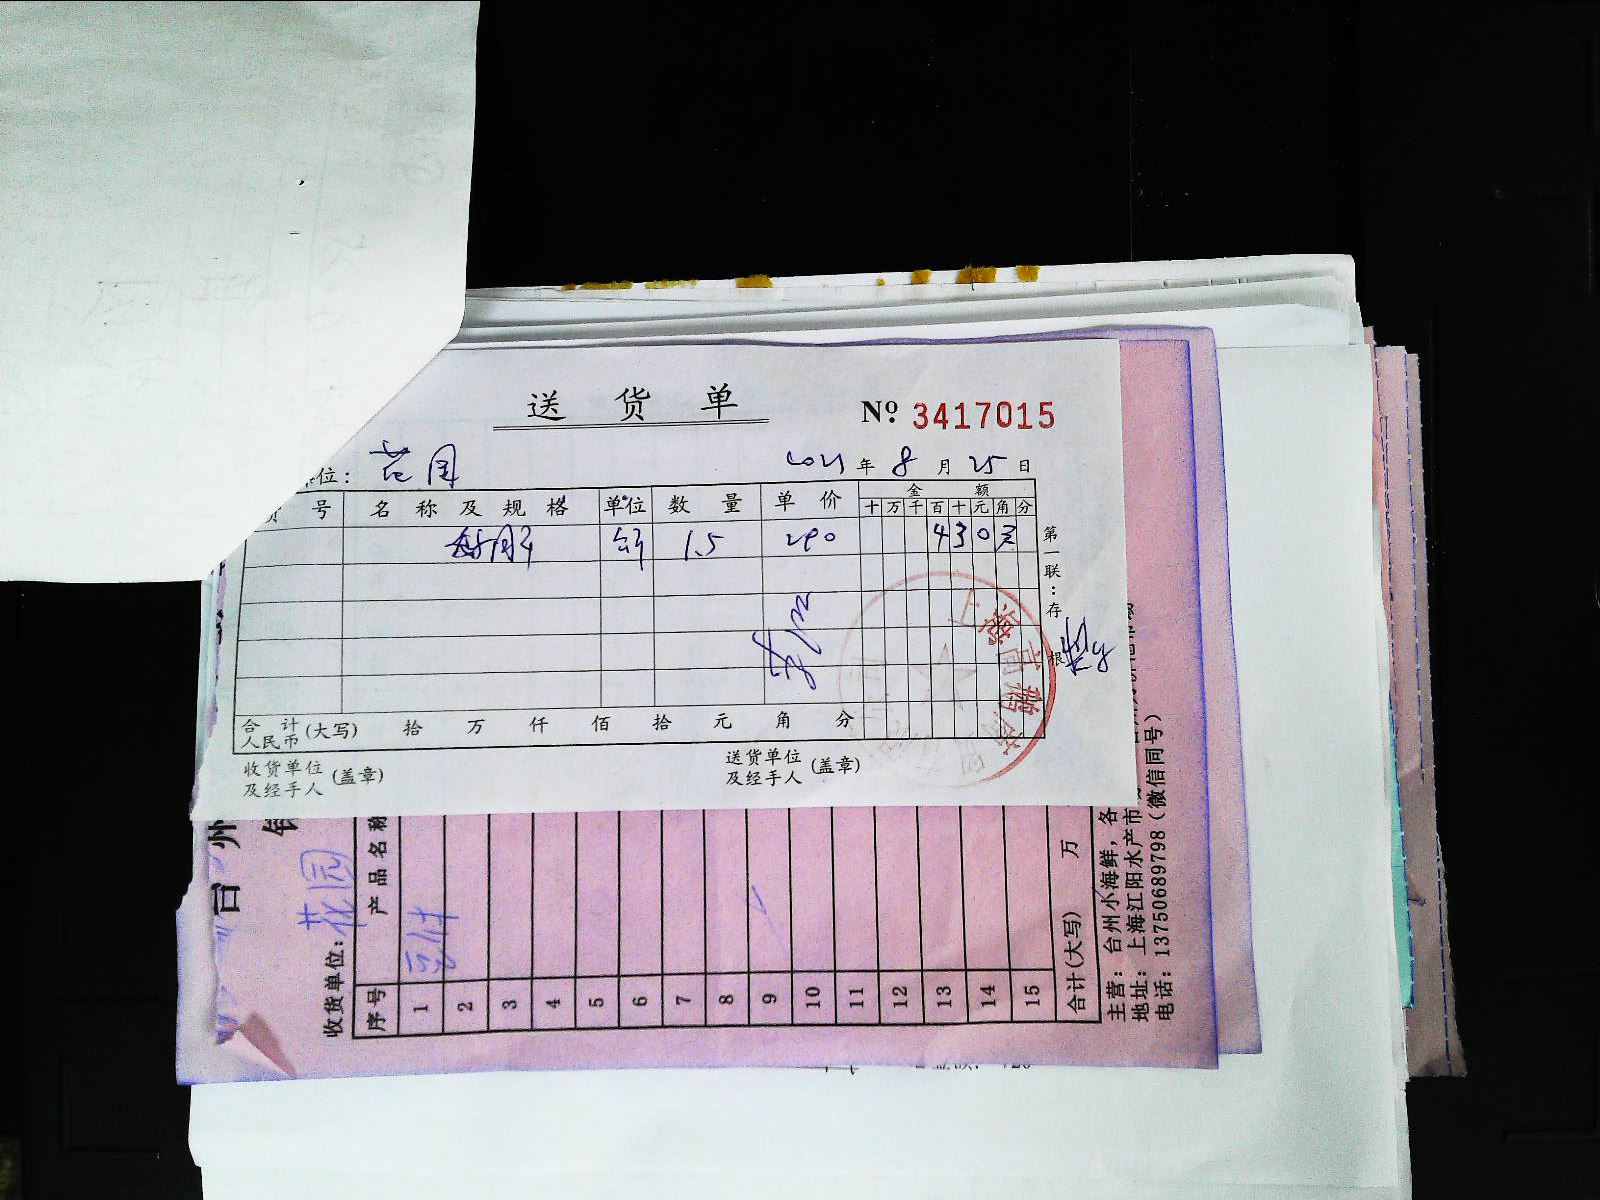 送货单 № 3417015
位: 花园 2021年8月25日
号 名称及规格 单位 数量 单价 金额
十万千百十元角分
1.5 290 430元
第一联:存根
合计人民币(大写) 拾 万 仟 佰 拾 元 角 分
收货单位及经手人(盖章) 送货单位及经手人(盖章)
上海
台州
收货单位: 花园
序号 产品名称
1
2
3
4
5
6
7
8
9
10
11
12
13
14
15
合计(大写) 万
主营: 台州小海鲜, 各
地址: 上海江阳水产市
电话: 13750689798 (微信同号)